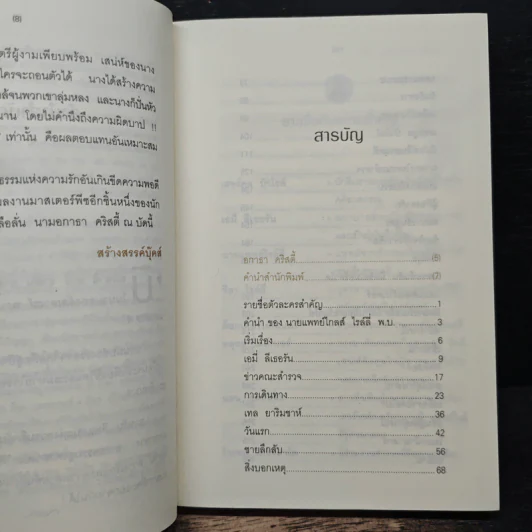 (8)
ตรีผู้งามเพียบพร้อม เสน่ห์ของนาง
ใครจะถอนตัวได้ นางได้สร้างความ
ล้จนพวกเขาลุ่มหลง และนางก็ปั่นหัว
นาน โดยไม่คำนึงถึงความผิดบาป !!
เท่านั้น คือผลตอบแทนอันเหมาะสม
ธรรมแห่งความรักอันเกินขีดความพอดี
ลงานมาสเตอร์พีซอีกชิ้นหนึ่งของนัก
ลือลั่น นามอกาธา คริสตี้ ณ บัดนี้
สร้างสรรค์บุ๊คส์
สารบัญ
อกาธา คริสตี้ (6)
คำนำสำนักพิมพ์ (7)
รายชื่อตัวละครสำคัญ 1
คำนำ ของ นายแพทย์ไกลส์ ไรล์ลี่ พ.บ. 3
เริ่มเรื่อง 6
เอมี่ ลีเธอรัน 9
ข่าวคณะสำรวจ 17
การเดินทาง 23
เทล ยาริมซาห์ 36
วันแรก 42
ชายลึกลับ 56
สิ่งบอกเหตุ 68